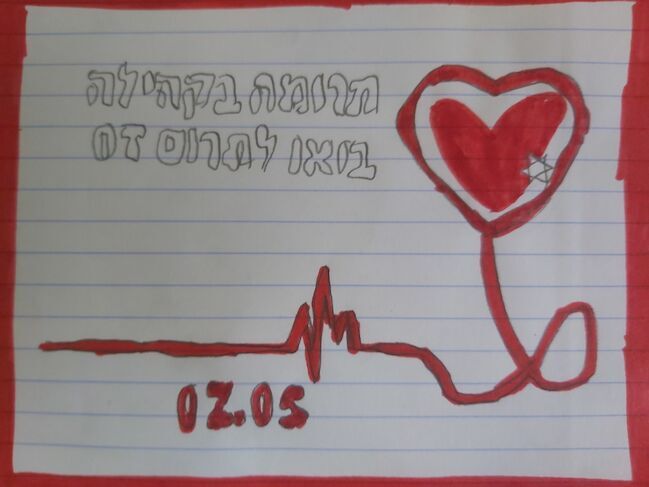 תרומה בקהילה
בואו לתרום דם
02.05